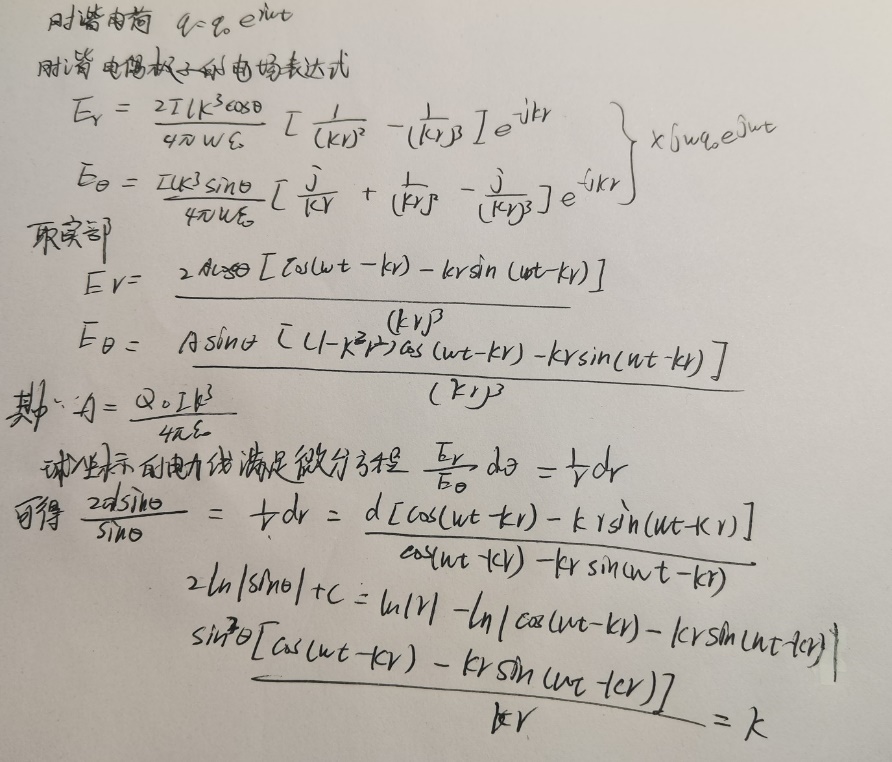 时谐电荷 q=q₀e^{jwt}
时谐电偶极子的电场表达式
E_r = \frac{2Ilk³cosθ}{4πWε₀} [ \frac{1}{(kr)²} - \frac{1}{(kr)³} ] e^{-jkr}
E_θ = \frac{Ilk³sinθ}{4πWε₀} [ \frac{j}{kr} + \frac{1}{(kr)²} - \frac{j}{(kr)³} ] e^{-jkr} } × jwq₀e^{jwt}
取实部
E_r = \frac{2Acosθ[cos(wt-kr)-krsin(wt-kr)]}{(kr)³}
E_θ = \frac{Asinθ[(1-k²r²)cos(wt-kr)-krsin(wt-kr)]}{(kr)³}
其中: A = \frac{Q₀Ik³}{4πε₀}
球坐标的电力线满足微分方程 \frac{E_r}{E_θ} dθ = \frac{1}{r} dr
可得 \frac{2dsinθ}{sinθ} = \frac{1}{r} dr = \frac{d[cos(wt-kr)-krsin(wt-kr)]}{cos(wt-kr)-krsin(wt-kr)}
2ln|sinθ|+C = ln|r| - ln|cos(wt-kr)-krsin(wt-kr)|
\frac{sin²θ[cos(wt-kr)-krsin(wt-kr)]}{kr} = k